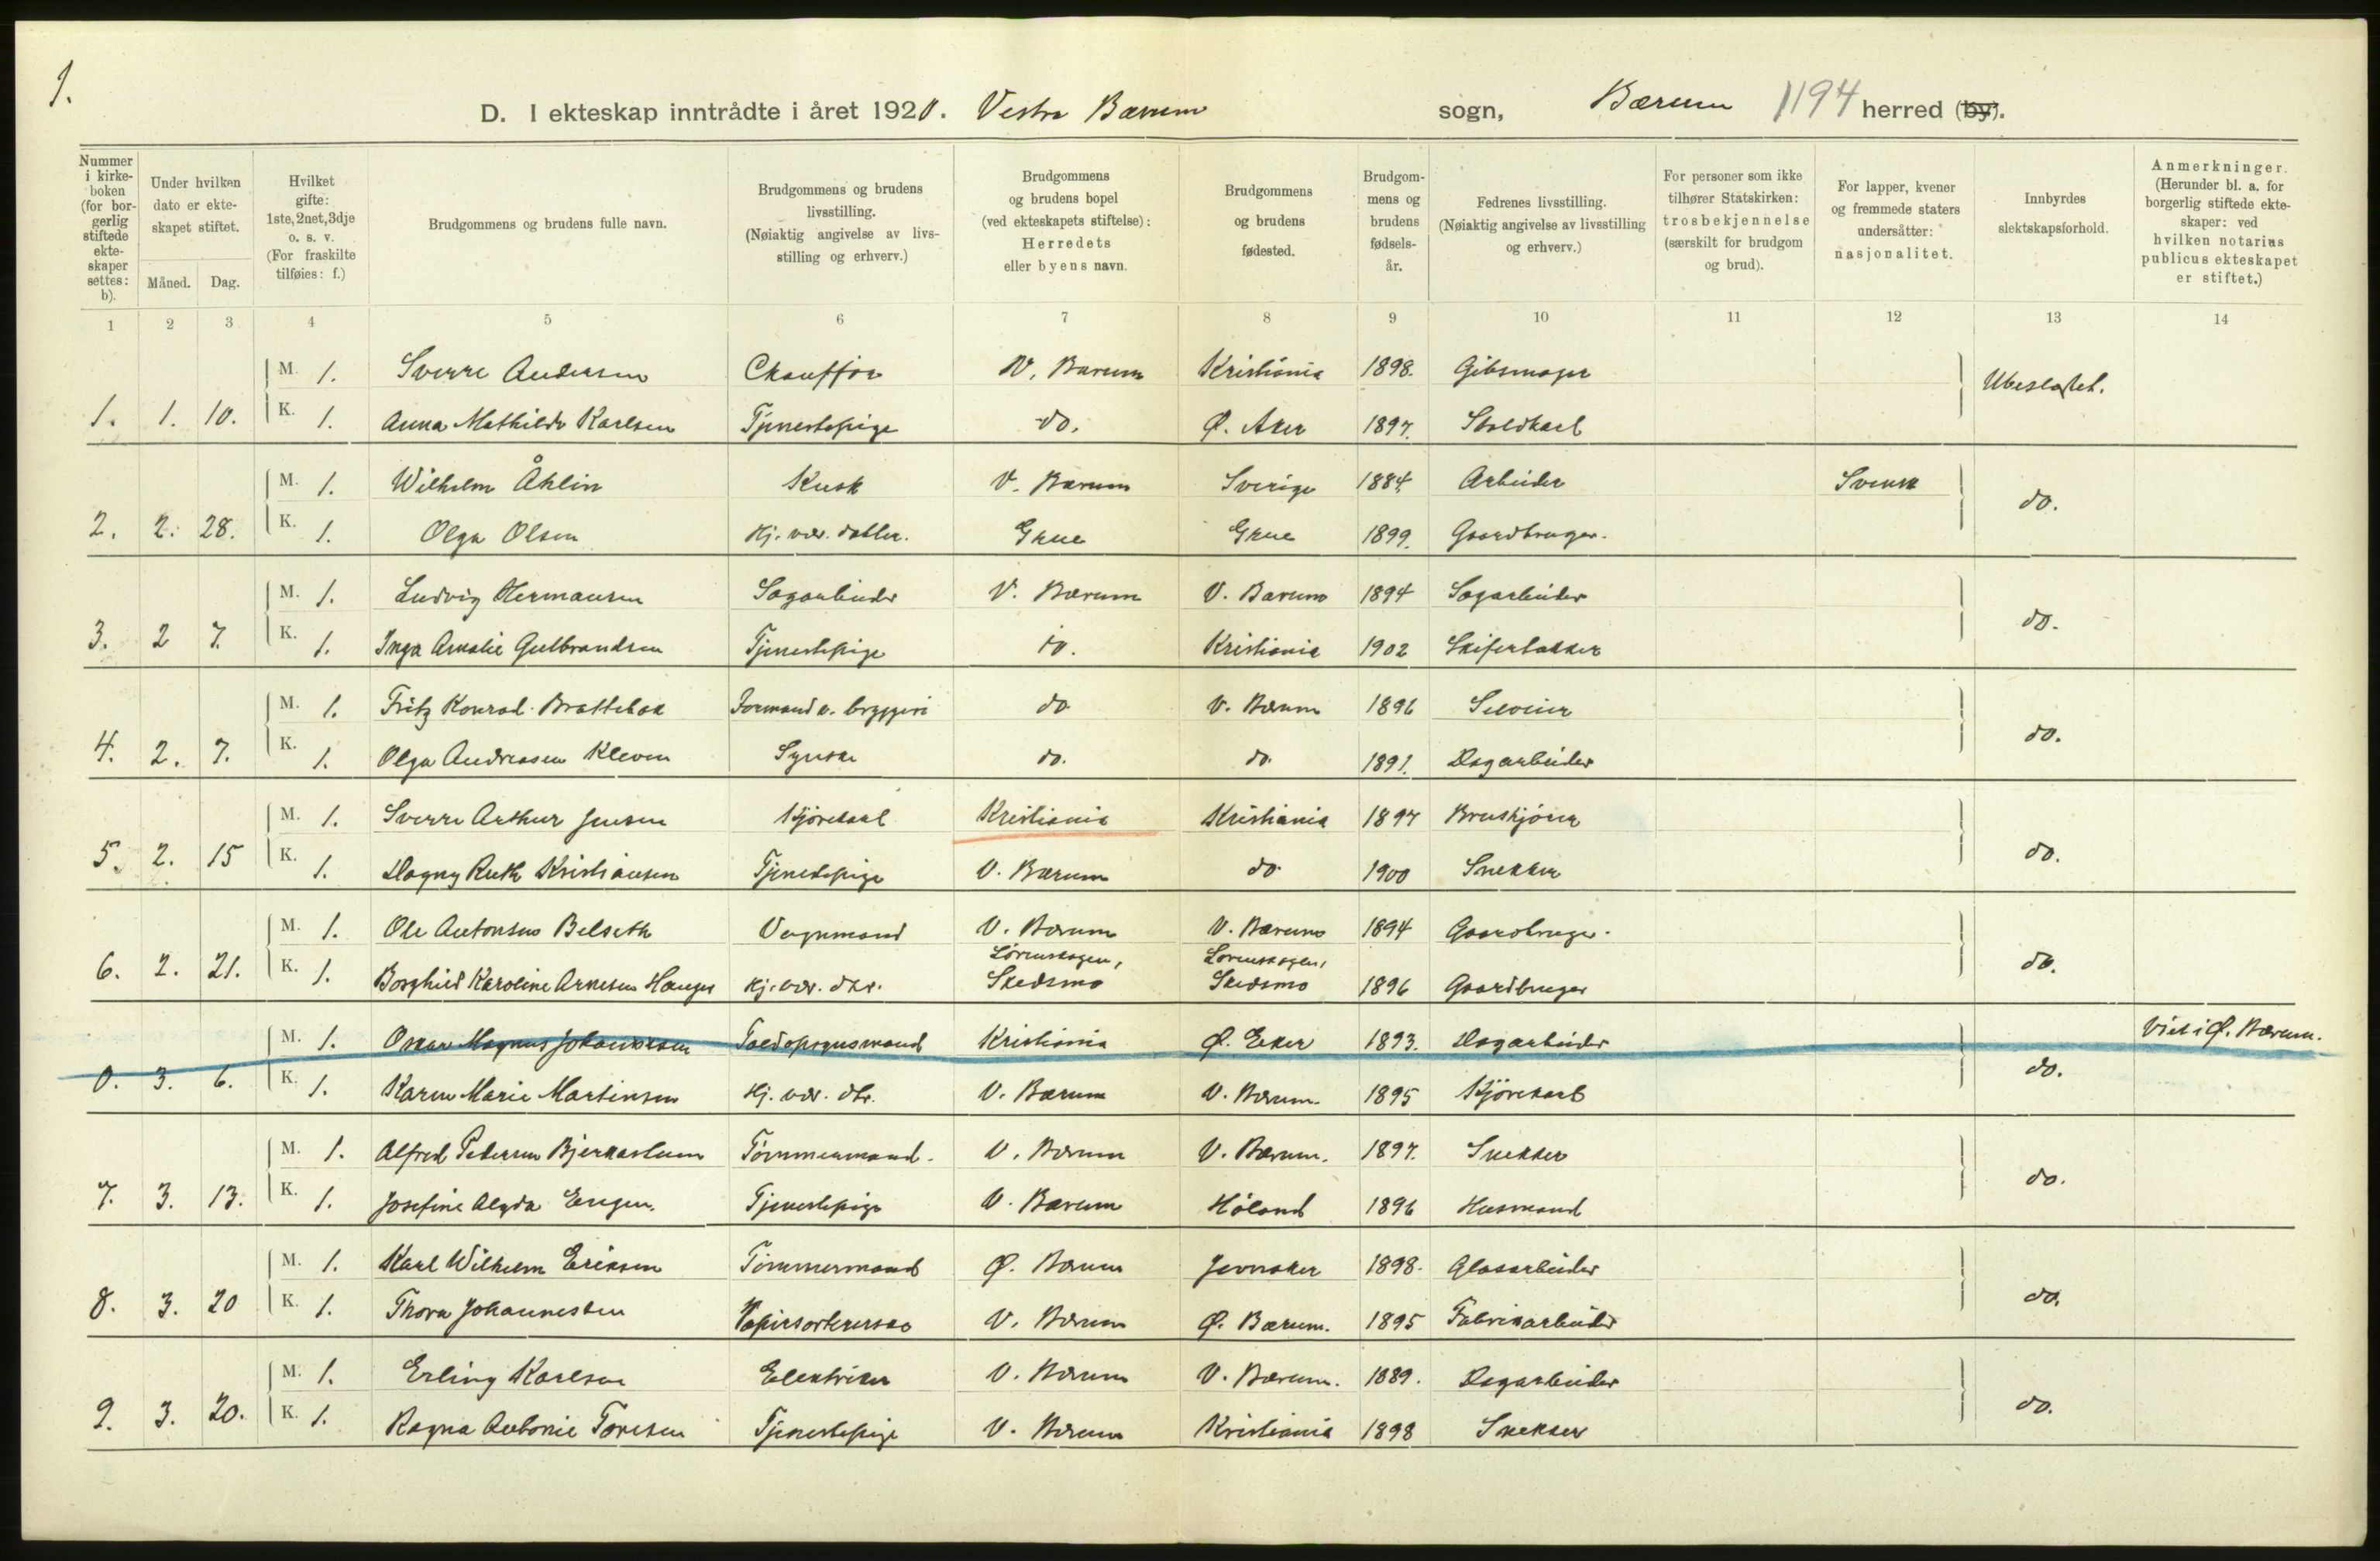 1.
D. I ekteskap inntrådte i året 1920. Vestre Bærum sogn, Bærum 1194 herred (by).
Nummer i kirke-boken (for bor-gerlig stiftede ekte-skaper settes: b).
Under hvilken dato er ekte-skapet stiftet.
Måned. Dag.
Hvilket gifte: 1ste, 2net, 3dje o. s. v. (For fraskilte tilføies: f.)
Brudgommens og brudens fulle navn.
Brudgommens og brudens livsstilling. (Nøiaktig angivelse av livs-stilling og erhverv.)
Brudgommens og brudens bopel (ved ekteskapets stiftelse): Herredets eller byens navn.
Brudgommens og brudens fødested.
Brudgom-mens og brudens fødsels-år.
Fedrenes livsstilling. (Nøiaktig angivelse av livsstilling og erhverv.)
For personer som ikke tilhører Statskirken: trosbekjennelse (særskilt for brudgom og brud).
For lapper, kvener og fremmede staters undersåtter: nasjonalitet.
Innbyrdes slektskapsforhold.
Anmerkninger. (Herunder bl. a. for borgerlig stiftede ekte-skaper: ved hvilken notarius publicus ekteskapet er stiftet.)
1 2 3 4 5 6 7 8 9 10 11 12 13 14
M. 1. Sverre Andersen Chauffør V. Bærum Kristiania 1898. Gibsmager Ubeslætet.
1. 1. 10. K. 1. Anna Mathilde Karlsen Tjenestepige do. Ø. Aker 1897. Staldkarl
M. 1. Wilhelm Åhlin Kusk V. Bærum Sverige 1884. Arbeider Svensk do.
2. 2. 28. K. 1. Olga Olsen Hj. vær. datter. Grue Grue 1899. Gaardbruger.
M. 1. Ludvig Hermansen Sagarbeider V. Bærum V. Bærum 1894 Sagarbeider do.
3. 2 7. K. 1. Inga Amalie Gulbrandsen Tjenestepige do. Kristiania 1902 Skifertækker
M. 1. Fritz Konrad Brattebak Formand v. bryggeri do V. Bærum 1896 Seloeier do.
4. 2. 7. K. 1. Olga Andreasen Kleven Syerske do. do. 1891. Dagarbeider
M. 1. Sverre Arthur Jensen Kjørekarl Kristiania Kristiania 1897 Bruskjører do.
5. 2. 15 K. 1. Dagny Ruth Kristiansen Tjenestepige V. Bærum do. 1900 Snekker
M. 1. Ole Antonsen Belseth Vognmand V. Bærum V. Bærum 1894 Gaardbruger. do.
6. 2. 21. K. 1. Borghild Karoline Arnesen Hauger Hj. vær. dtr. Lørenskogen, Skedsmo Lørenskogen, Skedsmo 1896 Gaardbruger
M. 1. Oskar Magnus Johannessen Toldopsynsmand Kristiania Ø. Eker 1893. Dagarbeider do. Viet i Ø. Bærum.
0. 3. 6. K. 1. Karen Marie Martinsen Hj. vær. dtr. V. Bærum V. Bærum. 1895 Kjørekarl
M. 1. Alfred Pedersen Bjerkaslum Tømmermand. V. Bærum V. Bærum. 1897. Snekker do.
7. 3. 13. K. 1. Josefine Alyda Engen. Tjenestepige V. Bærum Høland 1896 Husmand
M. 1. Karl Wilhelm Eriksen Tømmermand Ø. Bærum Jevnaker 1898. Glasarbeider do.
8. 3. 20 K. 1. Thora Johannessen Papirsorterske V. Bærum Ø. Bærum. 1895 Fabrikarbeider
M. 1. Erling Karlsen Elektriker V. Bærum V. Bærum. 1889. Dagarbeider do.
9. 3. 20. K. 1. Ragna Antonie Toresen Tjenestepige V. Bærum Kristiania 1898 Snekker